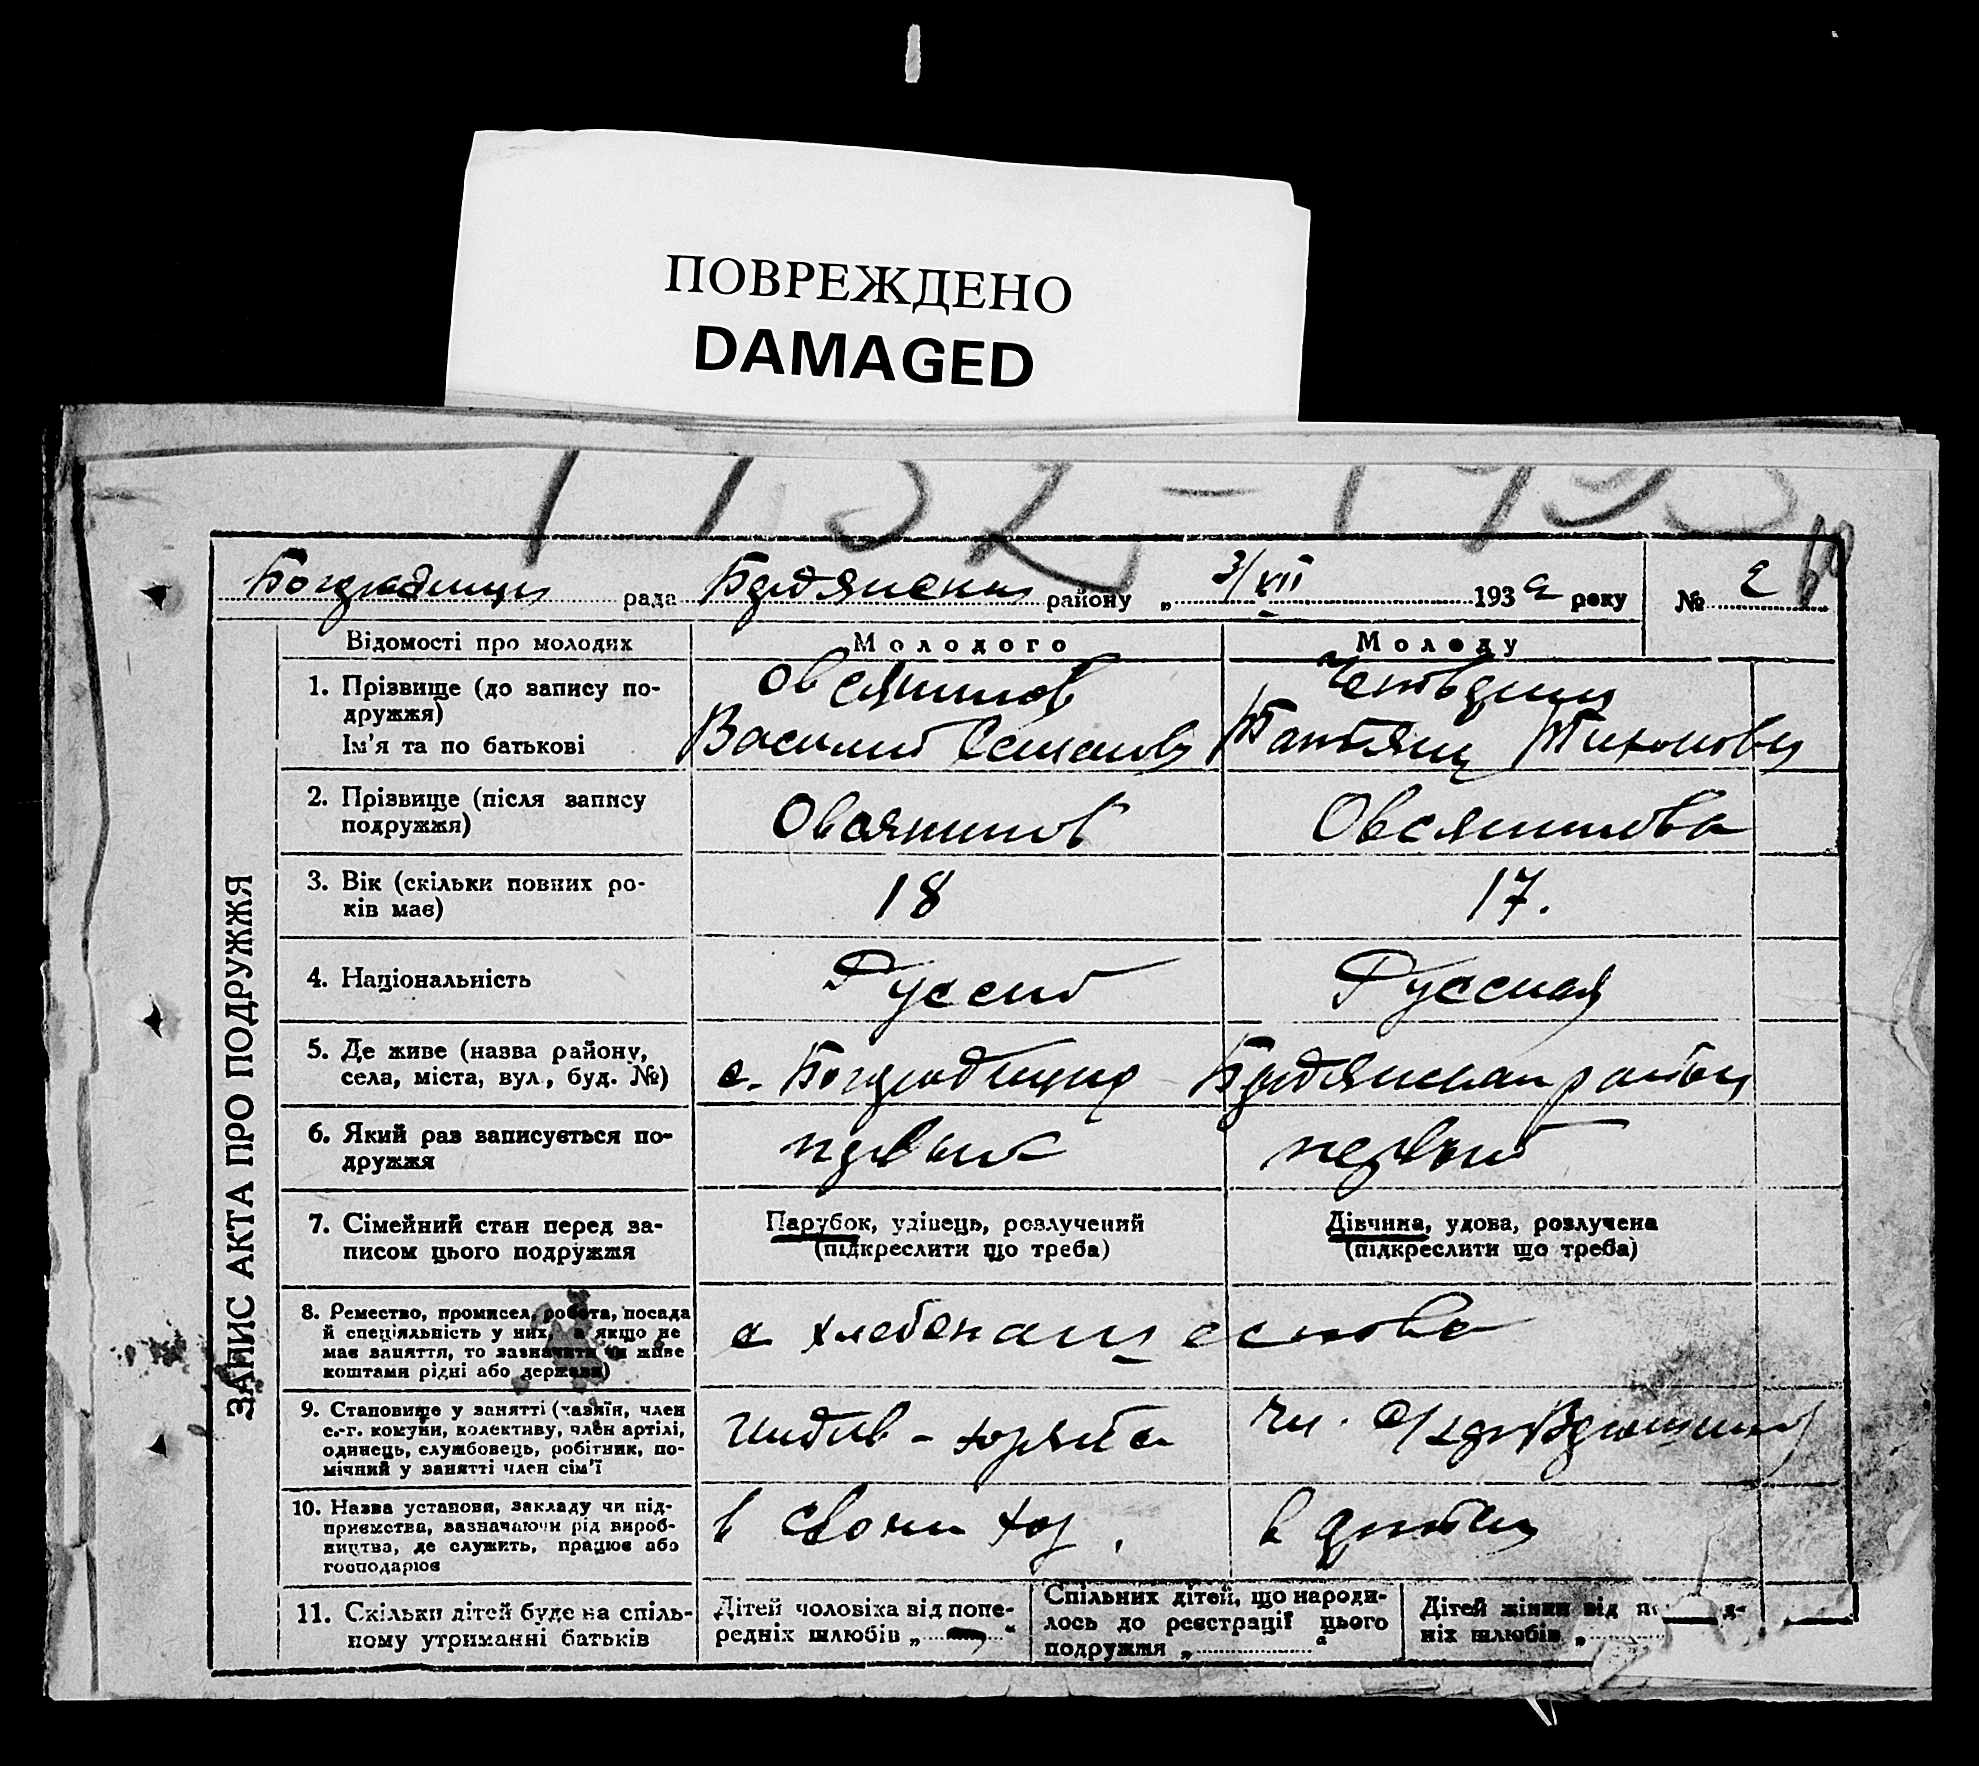 ПОВРЕЖДЕНО
DAMAGED
1932-193
рада району „ 3/VII 1932 року № 2
ЗАПИС АКТА ПРО ПОДРУЖЖЯ
Відомості про молодих Молодого Молоду
1. Прізвище (до запису по-
дружжя)
Ім'я та по батькові
Овсяников
Василий Татьяна Тихоновна
2. Прізвище (після запису
подружжя)
Овсяников Овсяникова
3. Вік (скільки повних ро-
ків має)
18 17.
4. Національність
Русский Русская
5. Де живе (назва району,
села, міста, вул., буд. №)
с. района
6. Який раз записується по-
дружжя
первый первый
7. Сімейний стан перед за-
писом цього подружжя
Парубок, удівець, розлучений
(підкреслити що треба)
Дівчина, удова, розлучена
(підкреслити що треба)
8. Ремество, промисел, робота, посада
й спеціяльність у них, а якщо не
має заняття, то зазначити чи живе
коштами рідні або держави)
9. Становище у занятті (хазяїн, член
с.-г. комуни, колективу, член артілі,
одинець, службовець, робітник, по-
мічний у занятті член сім'ї
10. Назва установи, закладу чи під-
приємства, зазначаючи рід вироб-
ництва, де служить, працює або
господарює
в своем хоз. в
11. Скільки дітей буде на спіль-
ному утриманні батьків
Дітей чоловіка від попе-
редніх шлюбів „ “
Спільних дітей, що народи-
лось до реєстрації цього
подружжя „ “
Дітей жінки від
ніх шлюбів „